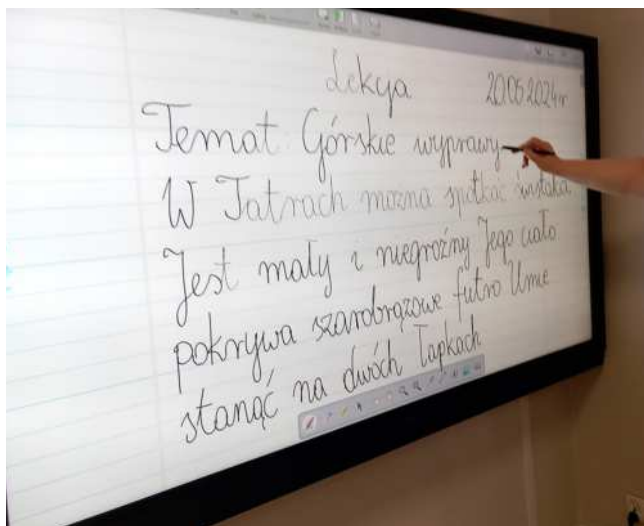 Lekcja 20.06.2024 r
Temat: Górskie wyprawy
W Tatrach można spotkać świstaka
Jest mały i niegroźny Jego ciało
pokrywa szarobrązowe futro Umie
stanąć na dwóch łapkach